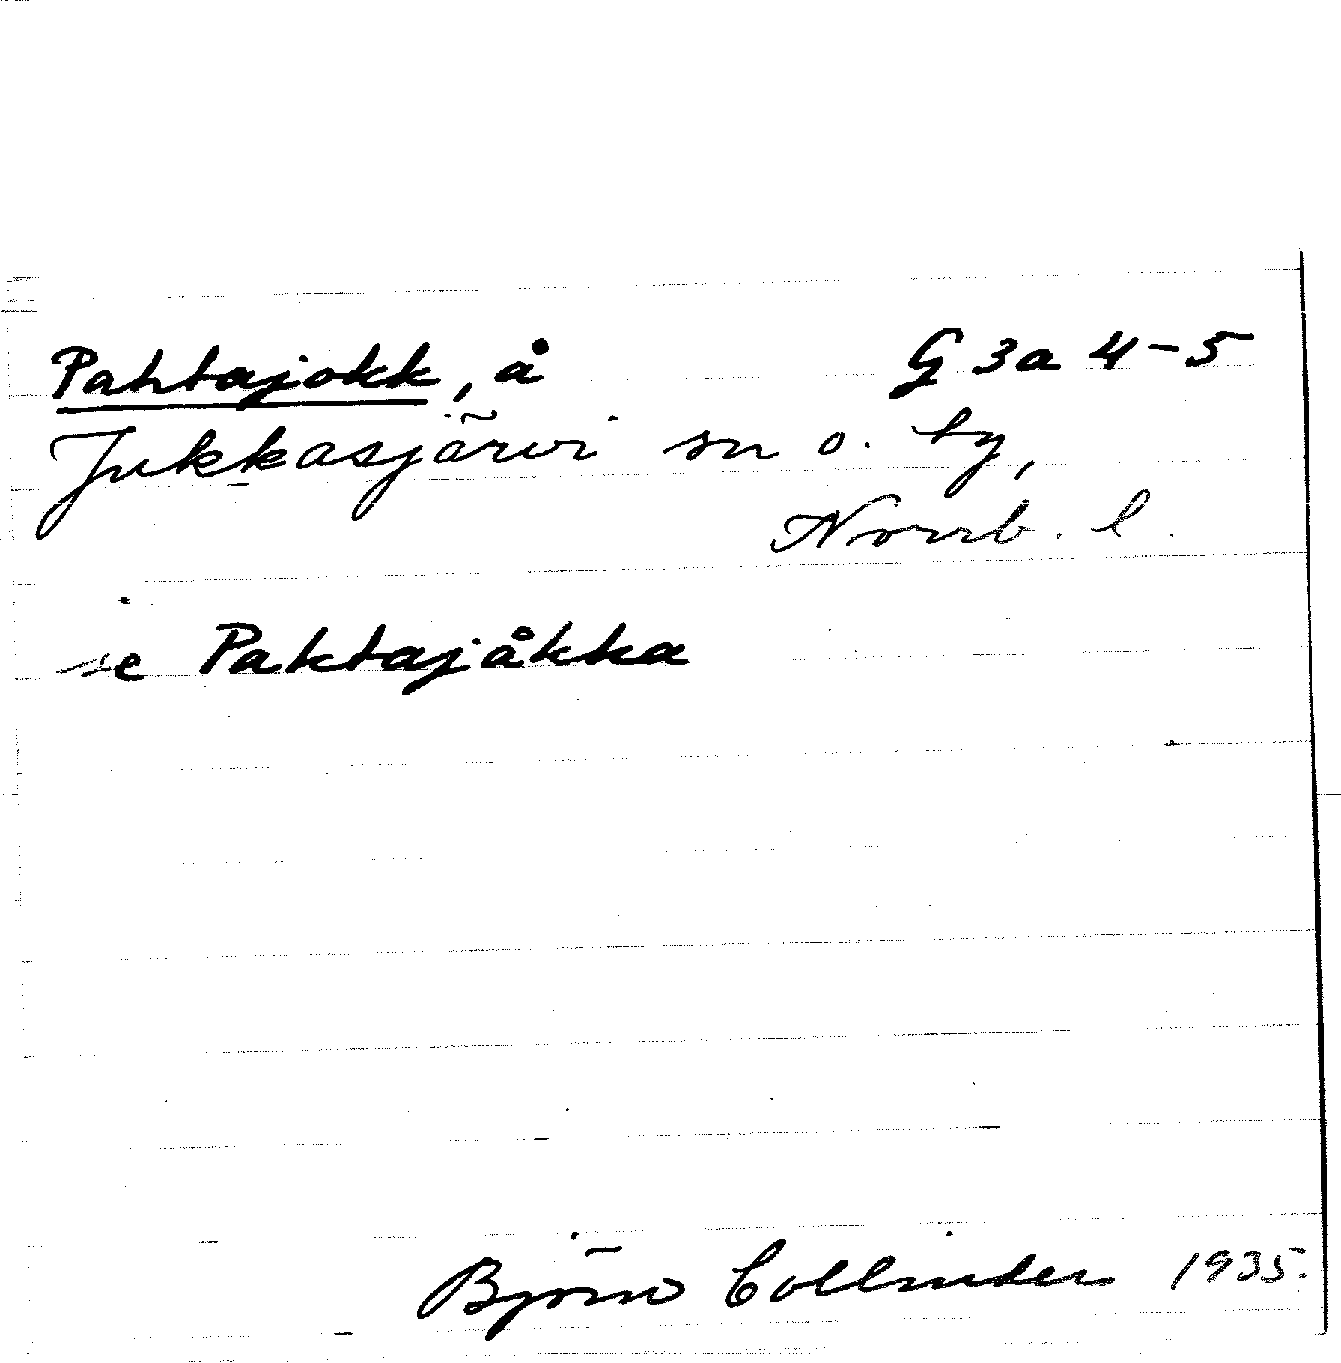 Pahtajokk, å G 3a 4-5
Jukkasjärvi sn o. tg,
Norrb. l.
se Paktajåkka
Björn Collinder 1935.